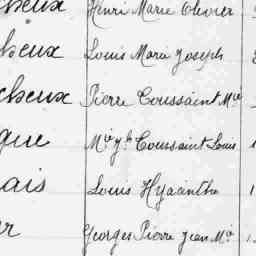 heux Henri Marie Olivier
heux Louis Marie Joseph
cheux Pierre Toussaint Mie
que Mie Jh Toussaint Louis
ais Louis Hyacinthe 1
r Georges Pierre Jean Mie 1